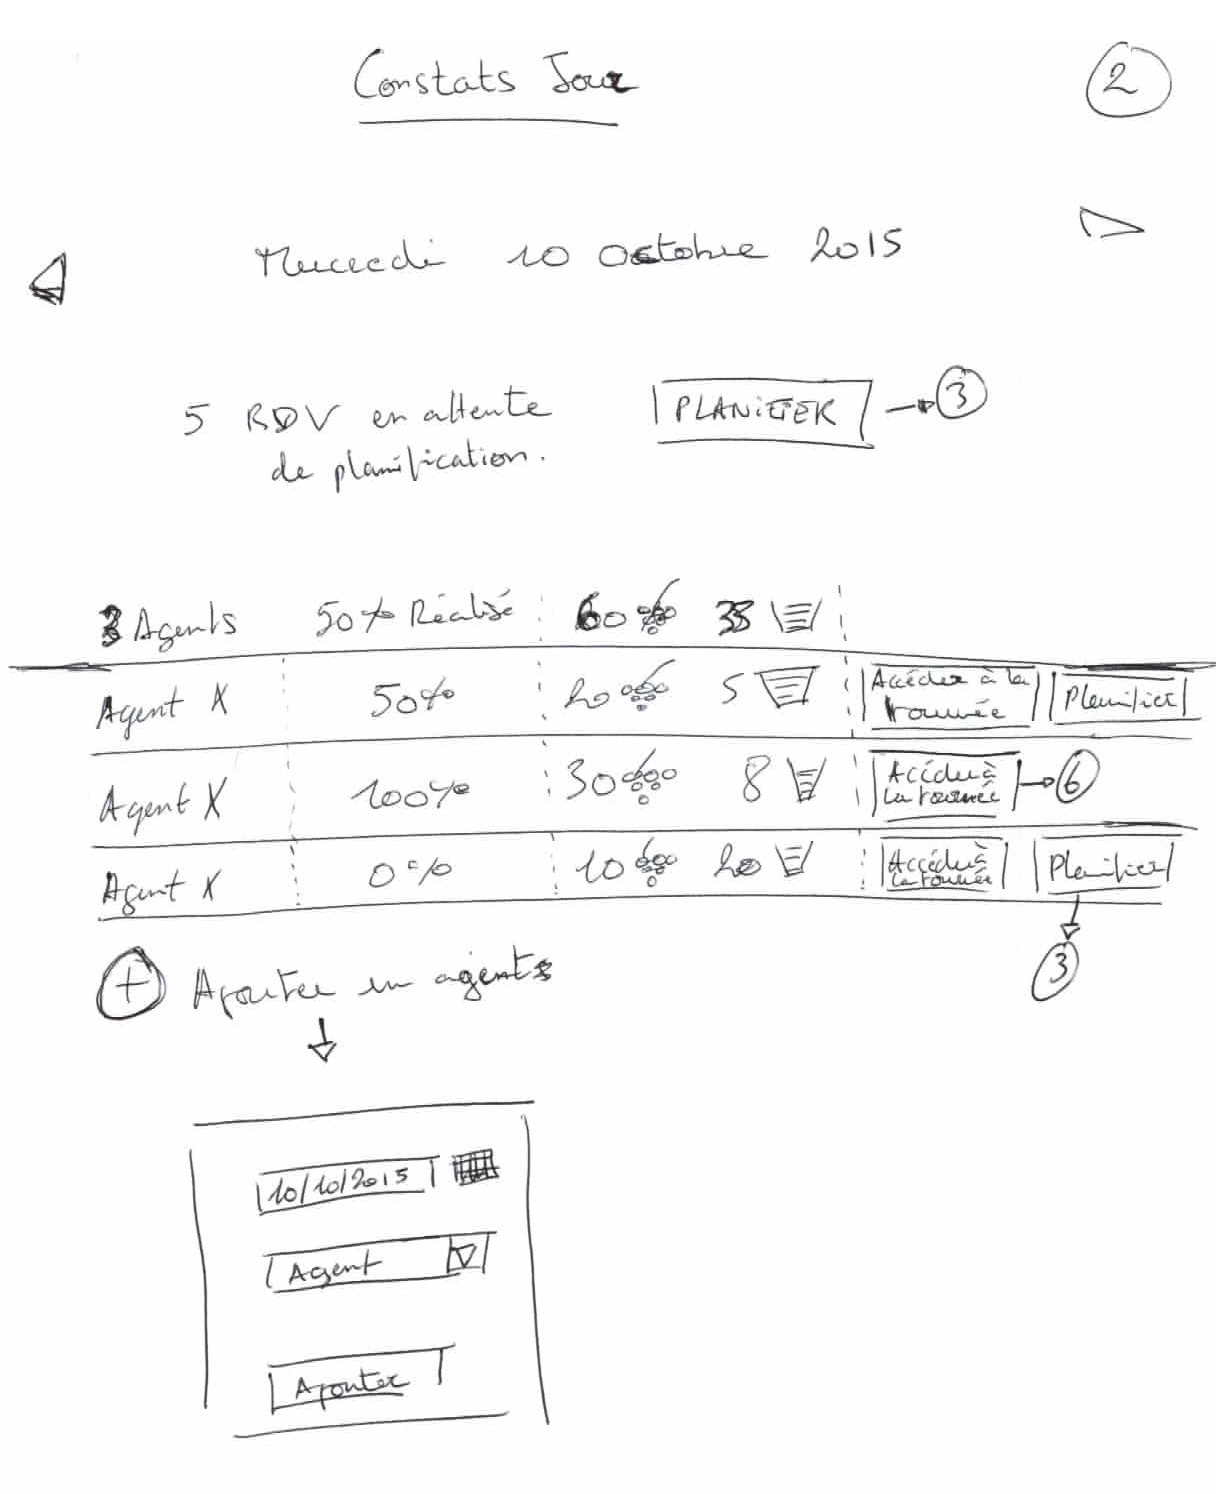 Constats Jour
2
Mercredi 10 Octobre 2015
5 RDV en attente
de planification.
PLANIFIER
3
3 Agents 50% Réalisé 60 33
Agent X 50% 20 5 Accéder à la
tournée
Planifier
Agent X 100% 30 8 Accéder à
la tournée
6
Agent X 0% 10 20 Accéder à
la tournée
Planifier
3
+ Ajouter un agent
10/10/2015
Agent
Ajouter